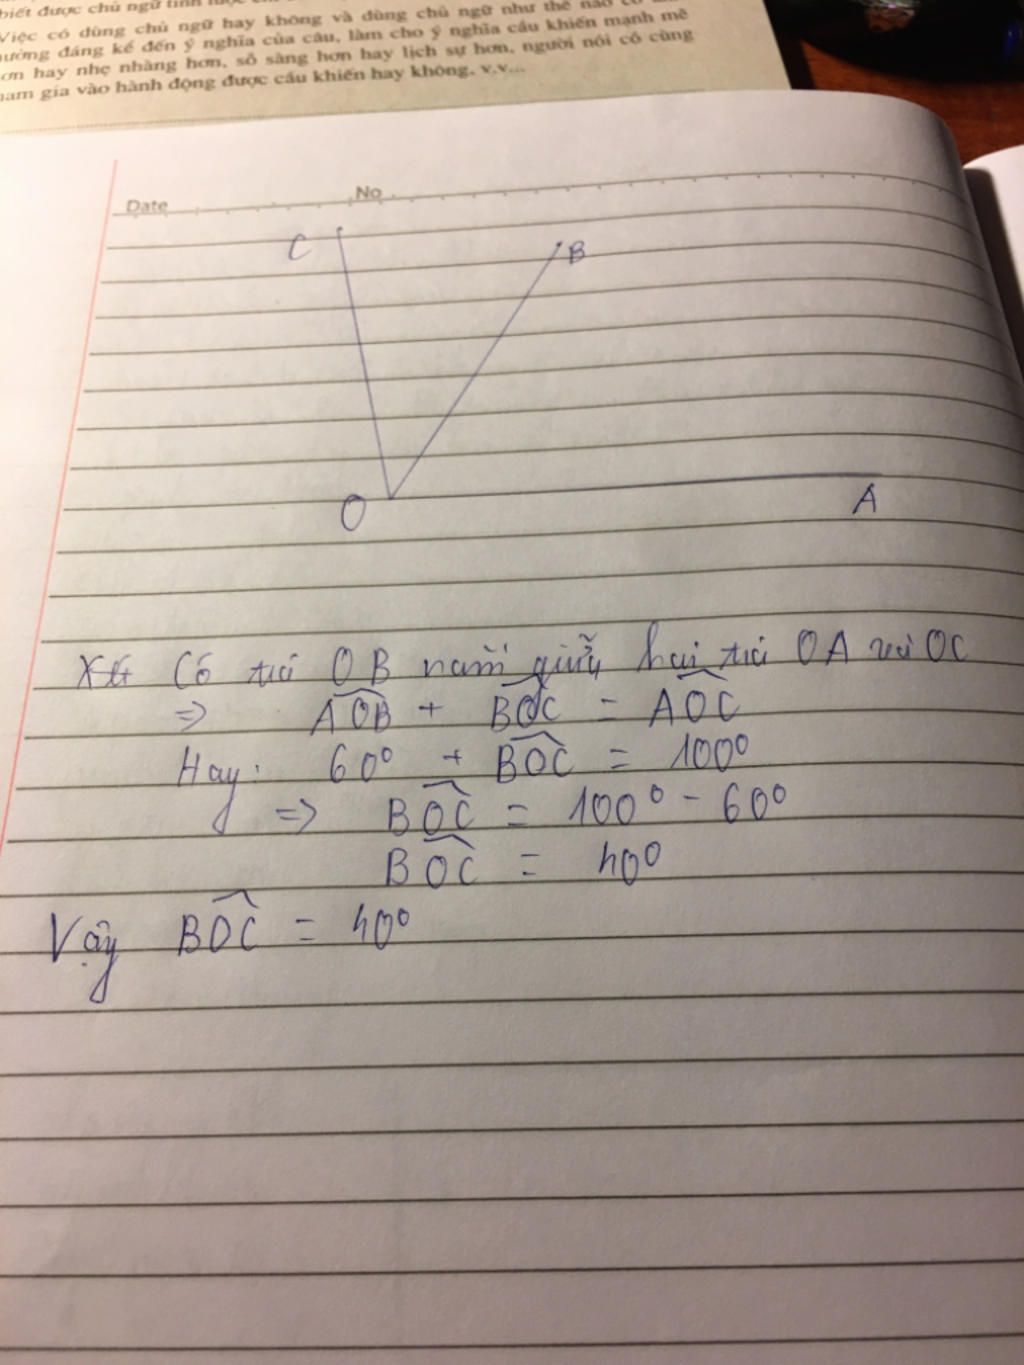 Việc có dùng chủ ngữ hay không và dùng chủ ngữ như thế nào có
hưởng đáng kể đến ý nghĩa của câu, làm cho ý nghĩa cầu khiến mạnh mẽ
hơn hay nhẹ nhàng hơn, sỗ sàng hơn hay lịch sự hơn, người nói có cùng
tham gia vào hành động được cầu khiến hay không, v.v...
Date No
C B
O A
Có tia OB nằm giữa hai tia OA và OC
=> AOB + BOC = AOC
Hay: 60° + BOC = 100°
=> BOC = 100° - 60°
BOC = 40°
Vậy BOC = 40°